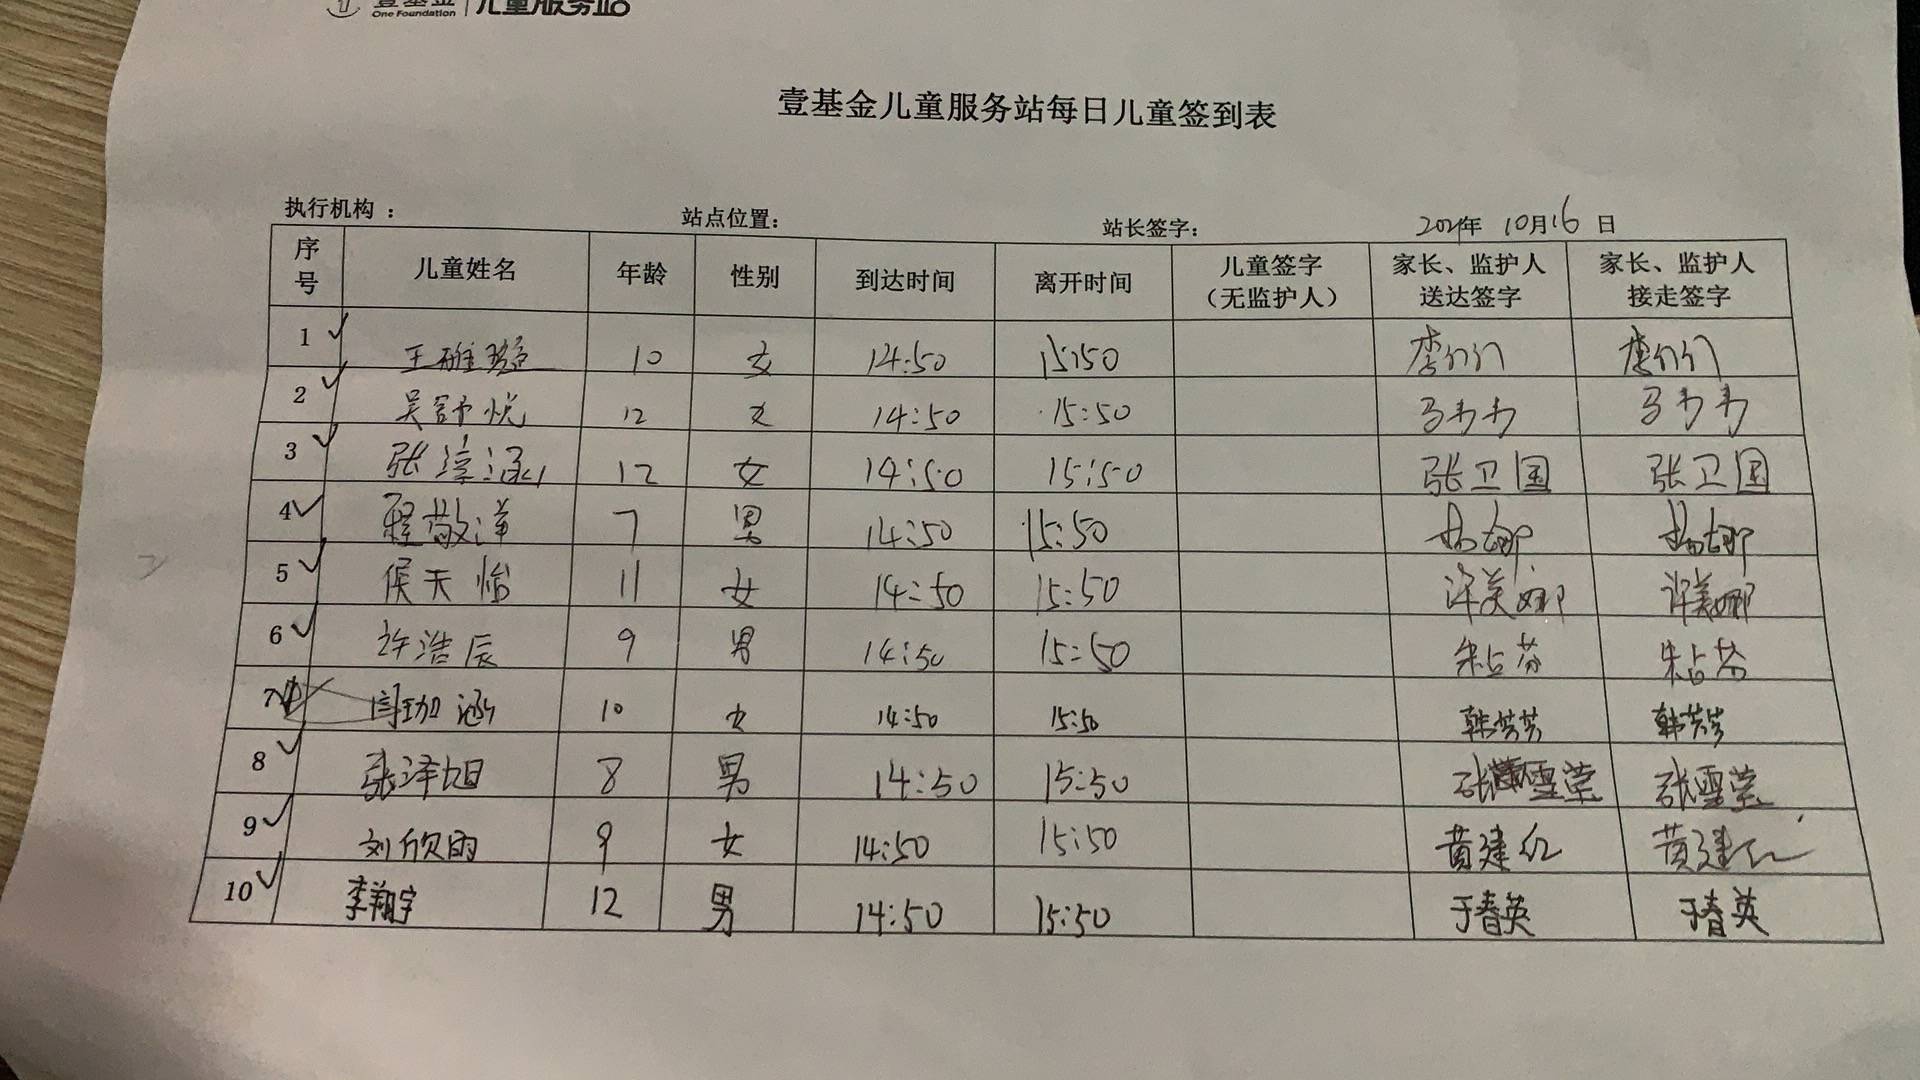 壹基金 One Foundation | 儿童服务站
壹基金儿童服务站每日儿童签到表
执行机构 ： 站点位置： 站长签字： 2021年 10月16日
序号 儿童姓名 年龄 性别 到达时间 离开时间 儿童签字（无监护人） 家长、监护人送达签字 家长、监护人接走签字
1 王雅璇 10 女 14:50 15:50
2 吴舒悦 12 女 14:50 15:50
3 张淳涵 12 女 14:50 15:50 张卫国 张卫国
4 程敬洋 7 男 14:50 15:50 杨娜 杨娜
5 侯天怡 11 女 14:50 15:50 许美娜 许美娜
6 许浩辰 9 男 14:50 15:50 朱占芬 朱占芬
7 闫珈涵 10 女 14:50 15:50 韩芳芳 韩芳芳
8 张泽旭 8 男 14:50 15:50 张雪莹 张雪莹
9 刘欣雨 9 女 14:50 15:50 黄建红 黄建红
10 李翔宇 12 男 14:50 15:50 于春英 于春英